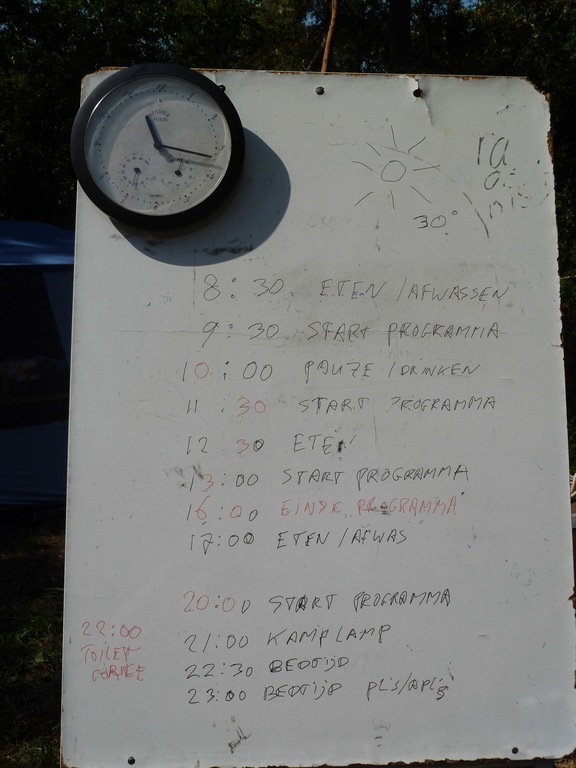 30°
8:30 ETEN / AFWASSEN
9:30 START PROGRAMMA
10:00 PAUZE / DRINKEN
11 30 START PROGRAMMA
12 30 ETEN
13:00 START PROGRAMMA
16:00 EINDE PROGRAMMA
17:00 ETEN / AFWAS
20:00 START PROGRAMMA
21:00 KAMPLAMP
22:00 TOILET
22:30 BEDTIJD
23:00 BEDTIJD PL'S/APL'S